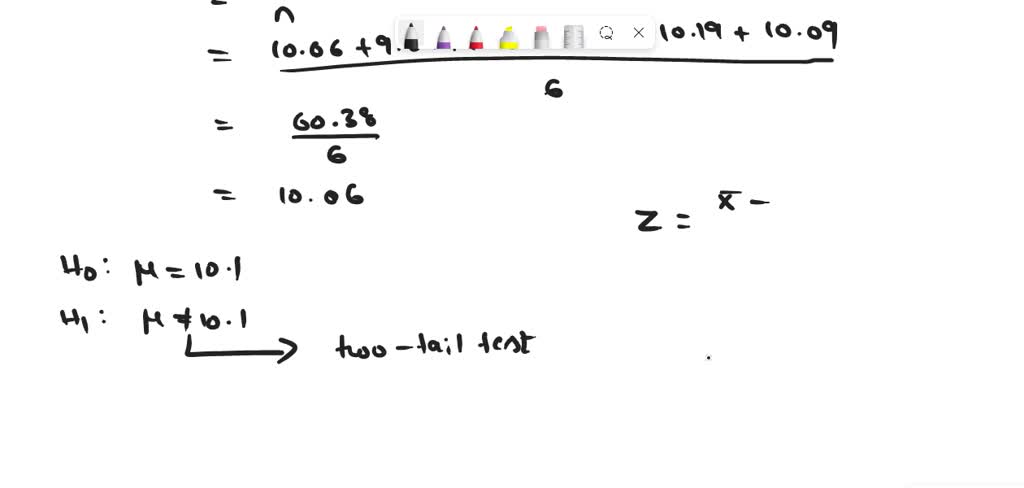 = n
= 10.06 + 9. 10.19 + 10.09
6
= 60.38
6
= 10.06
Z = x̄ –
H₀: μ = 10.1
H₁: μ ≠ 10.1
two-tail test